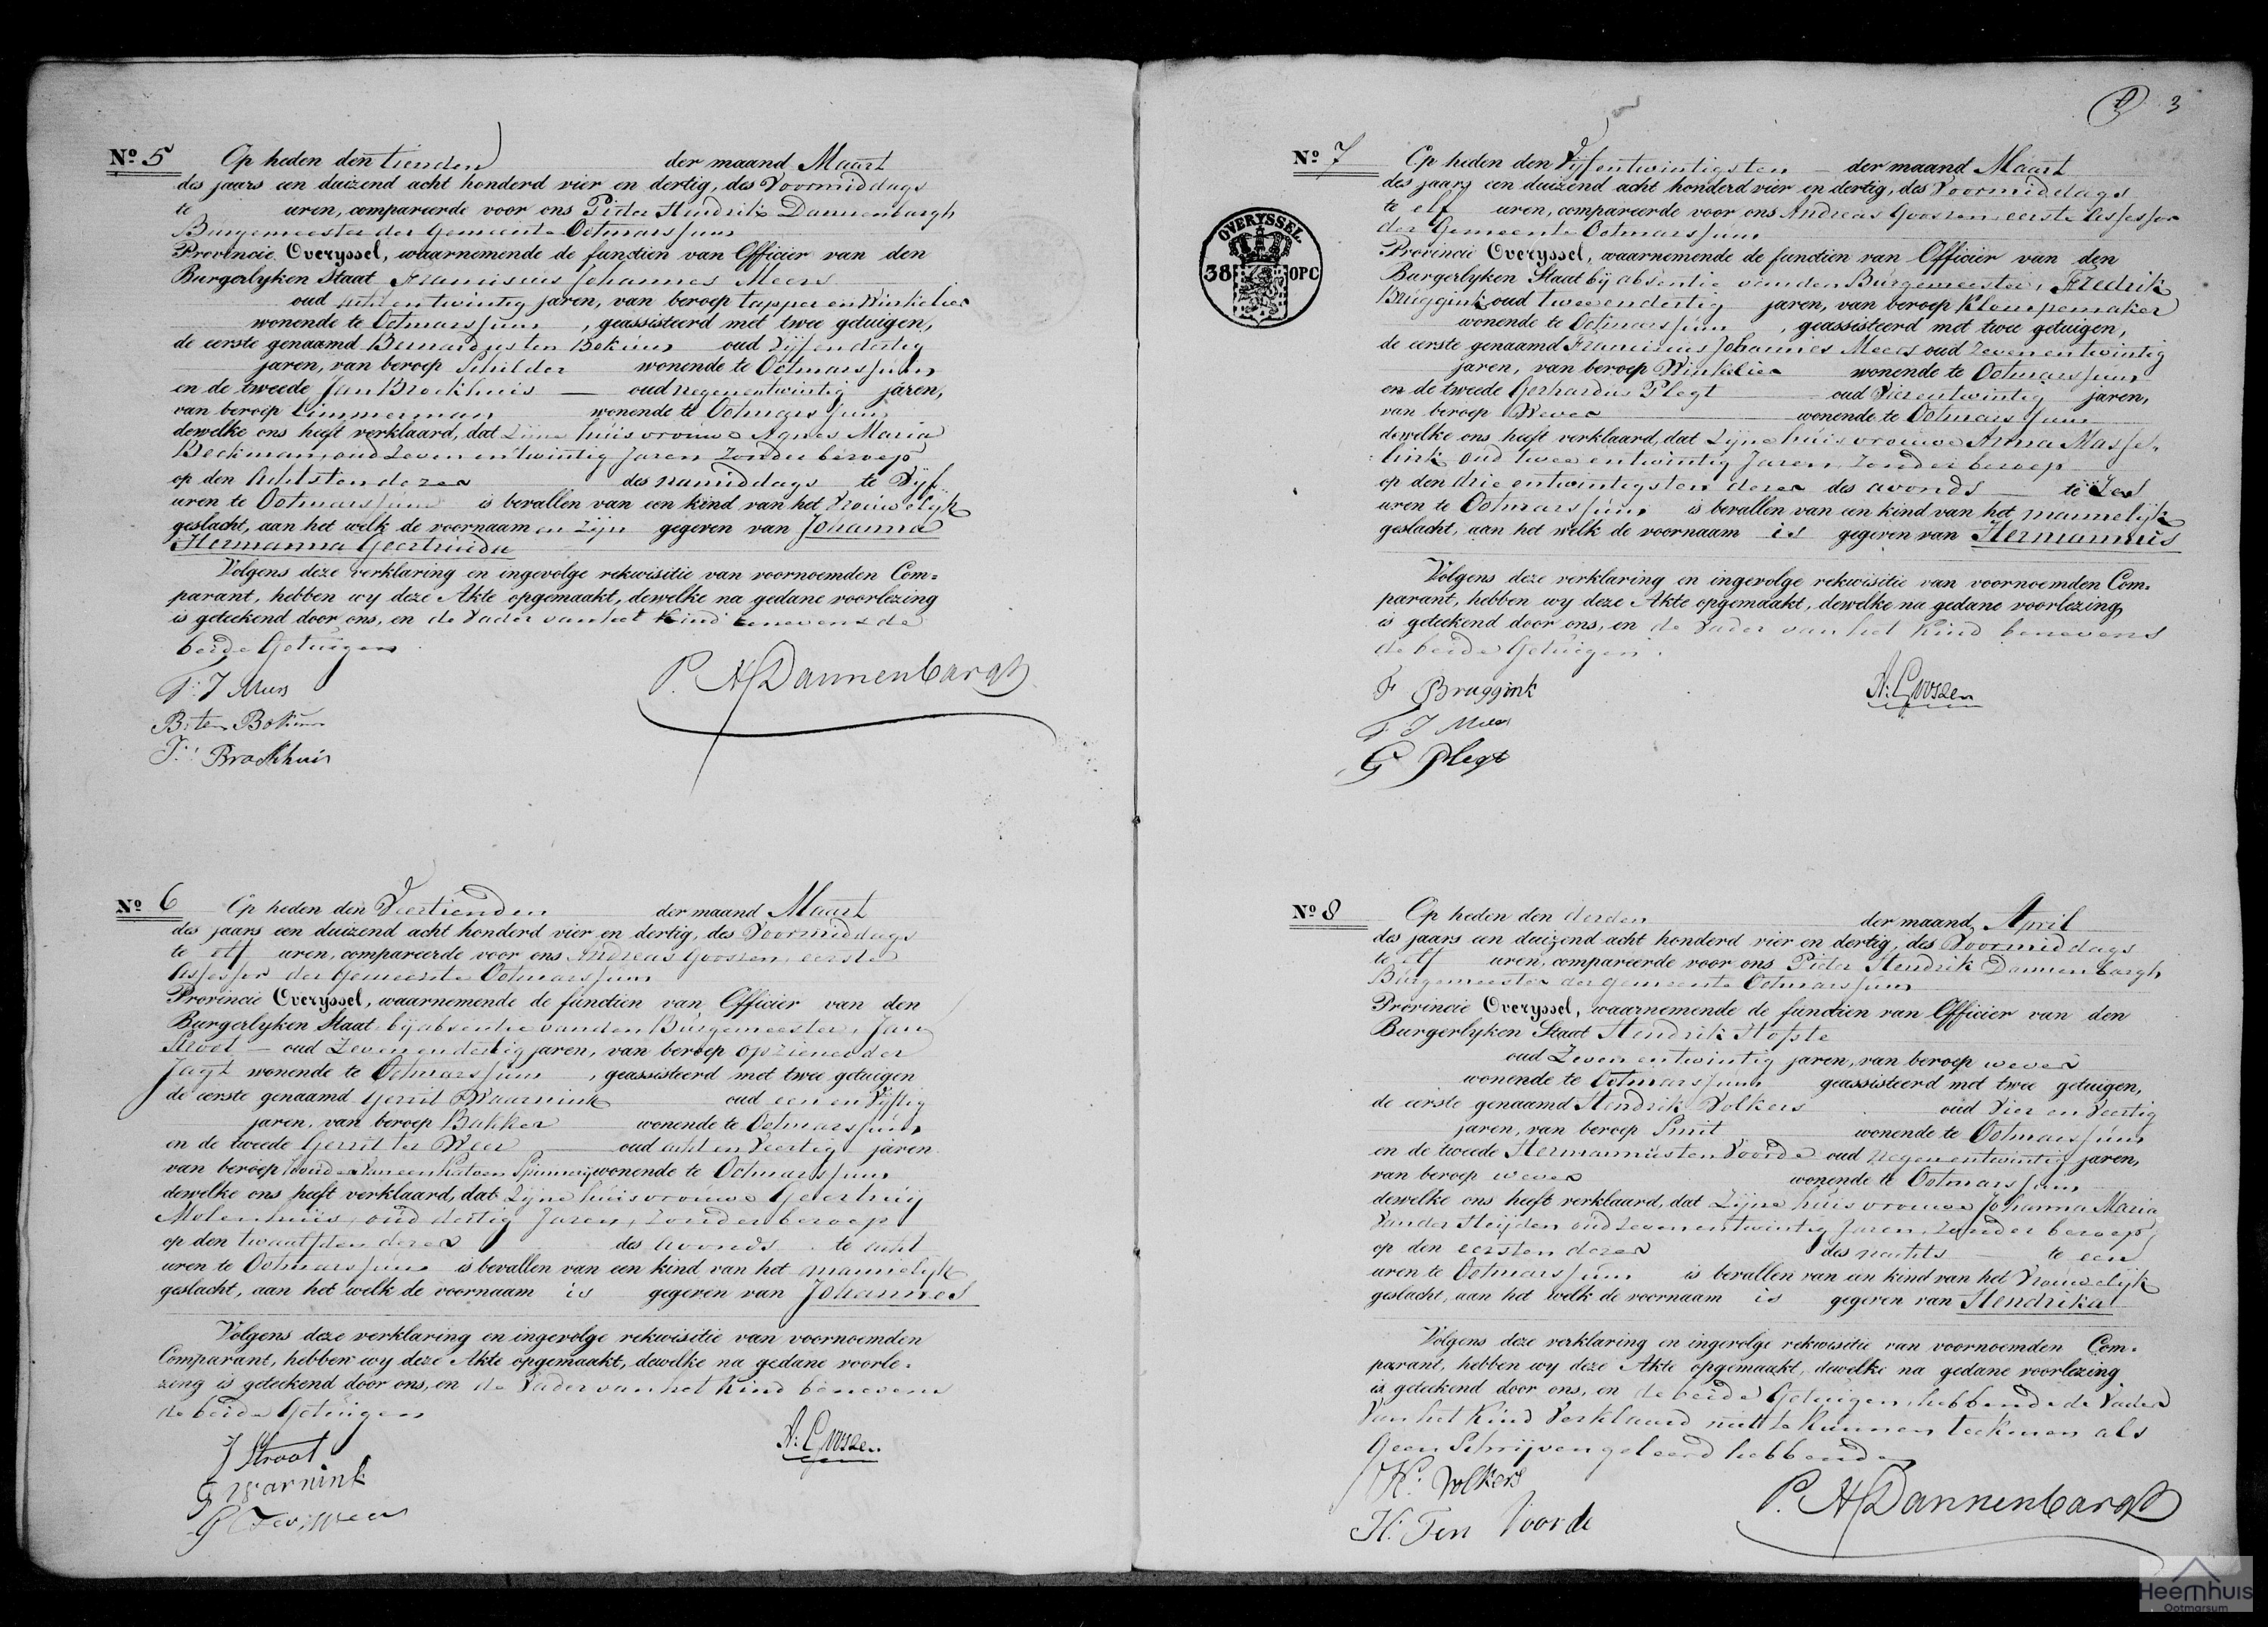 Nº 5 Op heden den tienden der maand Maart
des jaars een duizend acht honderd vier en dertig, des Voormiddags
te uren, compareerde voor ons Pieter Hendrik Dannenbargh
Burgemeester der Gemeente Ootmarssum
Provincie Overyssel, waarnemende de functien van Officier van den
Burgerlyken Staat Franciscus Johannes Mees
oud acht en twintig jaren, van beroep tapper en Winkelier
wonende te Ootmarssum, geassisteerd met twee getuigen,
de eerste genaamd Bernardus ten Bokum oud Vijf en dertig
jaren, van beroep Schilder wonende te Ootmarssum
en de tweede Jan Brockhuis oud negen en twintig jaren,
van beroep Timmerman wonende te Ootmarssum
dewelke ons heeft verklaard, dat Zijne huisvrouwe Agnes Maria
Beckman, oud Zeven en twintig Jaren Zonder beroep
op den Achtsten dezer des namiddags te Vijf
uren te Ootmarssum is bevallen van een kind van het Vrouwelijk
geslacht, aan het welk de voornaamen Zijn gegeven van Johanna
Hermanna Geertruida
Volgens deze verklaring en ingevolge rekwisitie van voornoemden Com=
parant, hebben wy deze Akte opgemaakt, dewelke na gedane voorlezing
is geteekend door ons, en de Vader van het Kind benevens de
beide Getuigen
F: J Mees
P. H Dannenbargh
B: ten Bokum
J: Brockhuis
Nº 6 Op heden den Veertienden der maand Maart
des jaars een duizend acht honderd vier en dertig, des Voormiddags
te elf uren, compareerde voor ons Andreas Goossen, eerste
Assessor der Gemeente Ootmarssum
Provincie Overyssel, waarnemende de functien van Officier van den
Burgerlyken Staat bij absentie van den Burgemeester, Jan
Stroot oud Zeven en dertig jaren, van beroep opziener der
Jagt wonende te Ootmarssum, geassisteerd met twee getuigen
de eerste genaamd Gerrit Waarnink oud een en Vijftig
jaren, van beroep Bakker wonende te Ootmarssum
en de tweede Gerrit ter Weer oud acht en Veertig jaren
van beroep van een Katoen Spinnerij wonende te Ootmarssum
dewelke ons heeft verklaard, dat Zijne huisvrouwe Geertruij
Molenhuis, oud dertig Jaren, Zonder beroep
op den twaalfden dezer des avonds te acht
uren te Ootmarssum is bevallen van een kind van het mannelijk
geslacht, aan het welk de voornaam is gegeven van Johannes
Volgens deze verklaring en ingevolge rekwisitie van voornoemden
Comparant, hebben wy deze Akte opgemaakt, dewelke na gedane voorle=
zing is geteekend door ons, en de Vader van het Kind benevens
de beide Getuigen
J Stroot
A: Goossen
G Warnink
G Ter Weer
3
Nº 7 Op heden den Vijfentwintigsten der maand Maart
des jaars een duizend acht honderd vier en dertig, des Voormiddags
te elf uren, compareerde voor ons Andreas Goossen eerste Assessor
der Gemeente Ootmarssum
Provincie Overyssel, waarnemende de functien van Officier van den
Burgerlyken Staat bij absentie van den Burgemeester, Fredrik
Bruggink oud twee en dertig jaren, van beroep Klompemaker
wonende te Ootmarssum, geassisteerd met twee getuigen,
de eerste genaamd Franciscus Johannes Mees oud Zeven en twintig
jaren, van beroep Winkelier wonende te Ootmarssum
en de tweede Gerhardus Plegt oud Vier en twintig jaren,
van beroep Wever wonende te Ootmarssum
dewelke ons heeft verklaard, dat Zijne huisvrouwe Anna Masse=
link oud twee en twintig Jaren Zonder beroep
op den drie en twintigsten dezer des avonds te Zes
uren te Ootmarssum is bevallen van een kind van het mannelijk
geslacht, aan het welk de voornaam is gegeven van Hermannus
Volgens deze verklaring en ingevolge rekwisitie van voornoemden Com=
parant, hebben wy deze Akte opgemaakt, dewelke na gedane voorlezing
is geteekend door ons, en de Vader van het Kind benevens
de beide Getuigen.
F Bruggink
A: Goossen
F J Mees
G Plegt
OVERYSSEL
38 OPC
Nº 8 Op heden den derden der maand April
des jaars een duizend acht honderd vier en dertig, des Voormiddags
te elf uren, compareerde voor ons Pieter Hendrik Dannenbargh
Burgemeester der Gemeente Ootmarssum
Provincie Overyssel, waarnemende de functien van Officier van den
Burgerlyken Staat Hendrik Hofste
oud Zeven en twintig jaren, van beroep wever
wonende te Ootmarssum geassisteerd met twee getuigen,
de eerste genaamd Hendrik Volkers oud Vier en Veertig
jaren, van beroep Smit wonende te Ootmarssum
en de tweede Hermannus ten Voorde oud negen en twintig jaren,
van beroep wever wonende te Ootmarssum
dewelke ons heeft verklaard, dat Zijne huisvrouwe Johanna Maria
van der Heijden oud Zeven en twintig Jaren, Zonder beroep,
op den eersten dezer des nachts te een
uren te Ootmarssum is bevallen van een kind van het Vrouwelijk
geslacht, aan het welk de voornaam is gegeven van Hendrika
Volgens deze verklaring en ingevolge rekwisitie van voornoemden Com=
parant, hebben wy deze Akte opgemaakt, dewelke na gedane voorlezing
is geteekend door ons, en de beide Getuigen, hebbende de Vader
van het Kind Verklaard niet te kunnen teekenen als
Geen Schrijven geleerd hebbende
H: Volkers
P. H Dannenbargh
H: Ten Voorde
Heemhuis
Ootmarsum